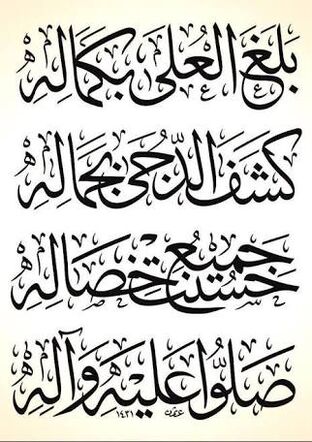 بَلَغَ العُلَى بِكَمَالِهِ
كَشَفَ الدُّجَى بِجَمَالِهِ
حَسُنَتْ جَمِيعُ خِصَالِهِ
صَلُّوا عَلَيْهِ وَآلِهِ
١٤٣١